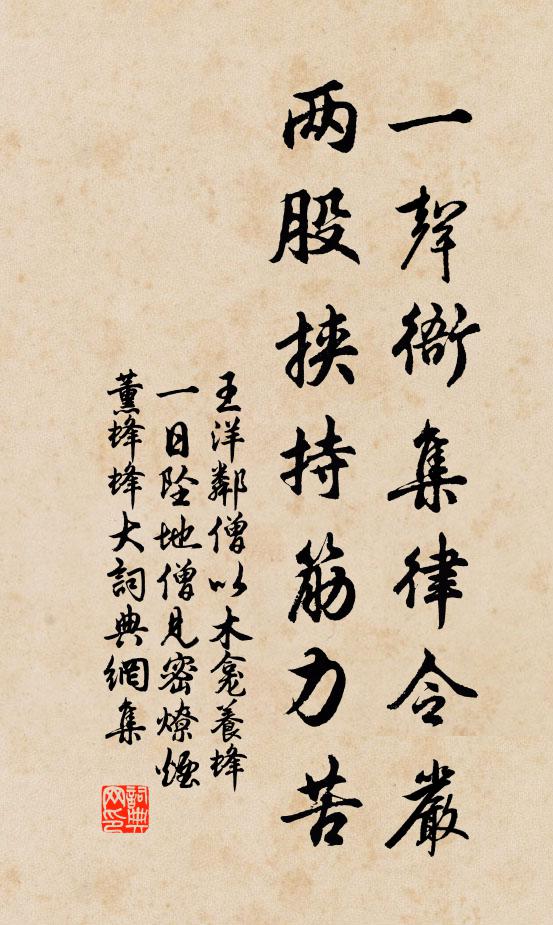 一聲衙集律令嚴
两股挟持筋力苦
王洋鄰僧以木龛養蜂
一日墜地僧見密燎煙
薰蜂蜂大詞典網集
詞典网印